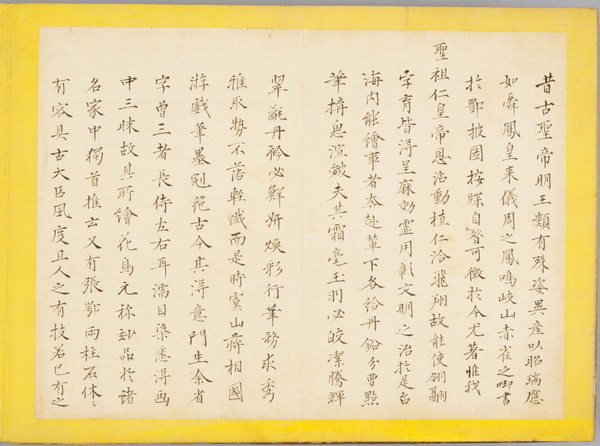 昔古聖帝明王類有殊姿異產以昭瑞應
如舜鳳皇來儀周之鳳鳴岐山赤雀之啣書
於鄷披圖按牒自昔可徵於今尤著惟我
聖祖仁皇帝恩治動植仁洽飛翔故能使翎翮
字育皆得呈庥効靈用彰文明之治於是召
海內能繪事者奔赴輦下各給丹鉛分曹點
筆搆思渲皴夫其霜毫玉羽必皎潔騰輝
翠氄丹衿必鮮妍煥彩行筆務求秀
雅取勢不落輕纖而是時虞山蔣相國
游戲筆墨冠範古今其得意門生余省
字曾三者長侍左右耳濡目染悉得画
中三昧故其所繪花鳥尤称妙品於諸
名家中獨首推云又有張鄂兩柱石休〻
有容具古大臣風度且人之有技若已有之